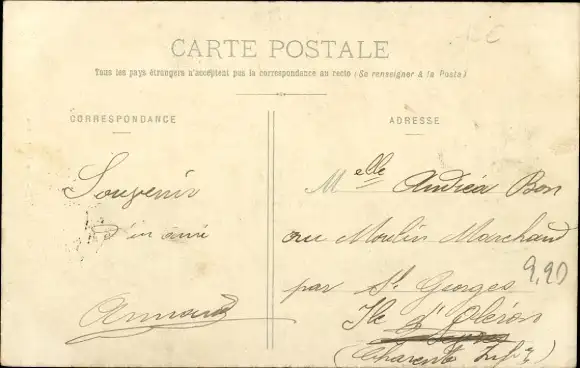 CARTE POSTALE
Tous les pays étrangers n'acceptent pas la correspondance au recto (Se renseigner à la Poste)
CORRESPONDANCE
ADRESSE
Souvenir
d'un ami
Armand
Melle Andréa Bon
au Moulin Marchand
par St Georges
Ile d'Oléron
(Charente Infre)
9,90